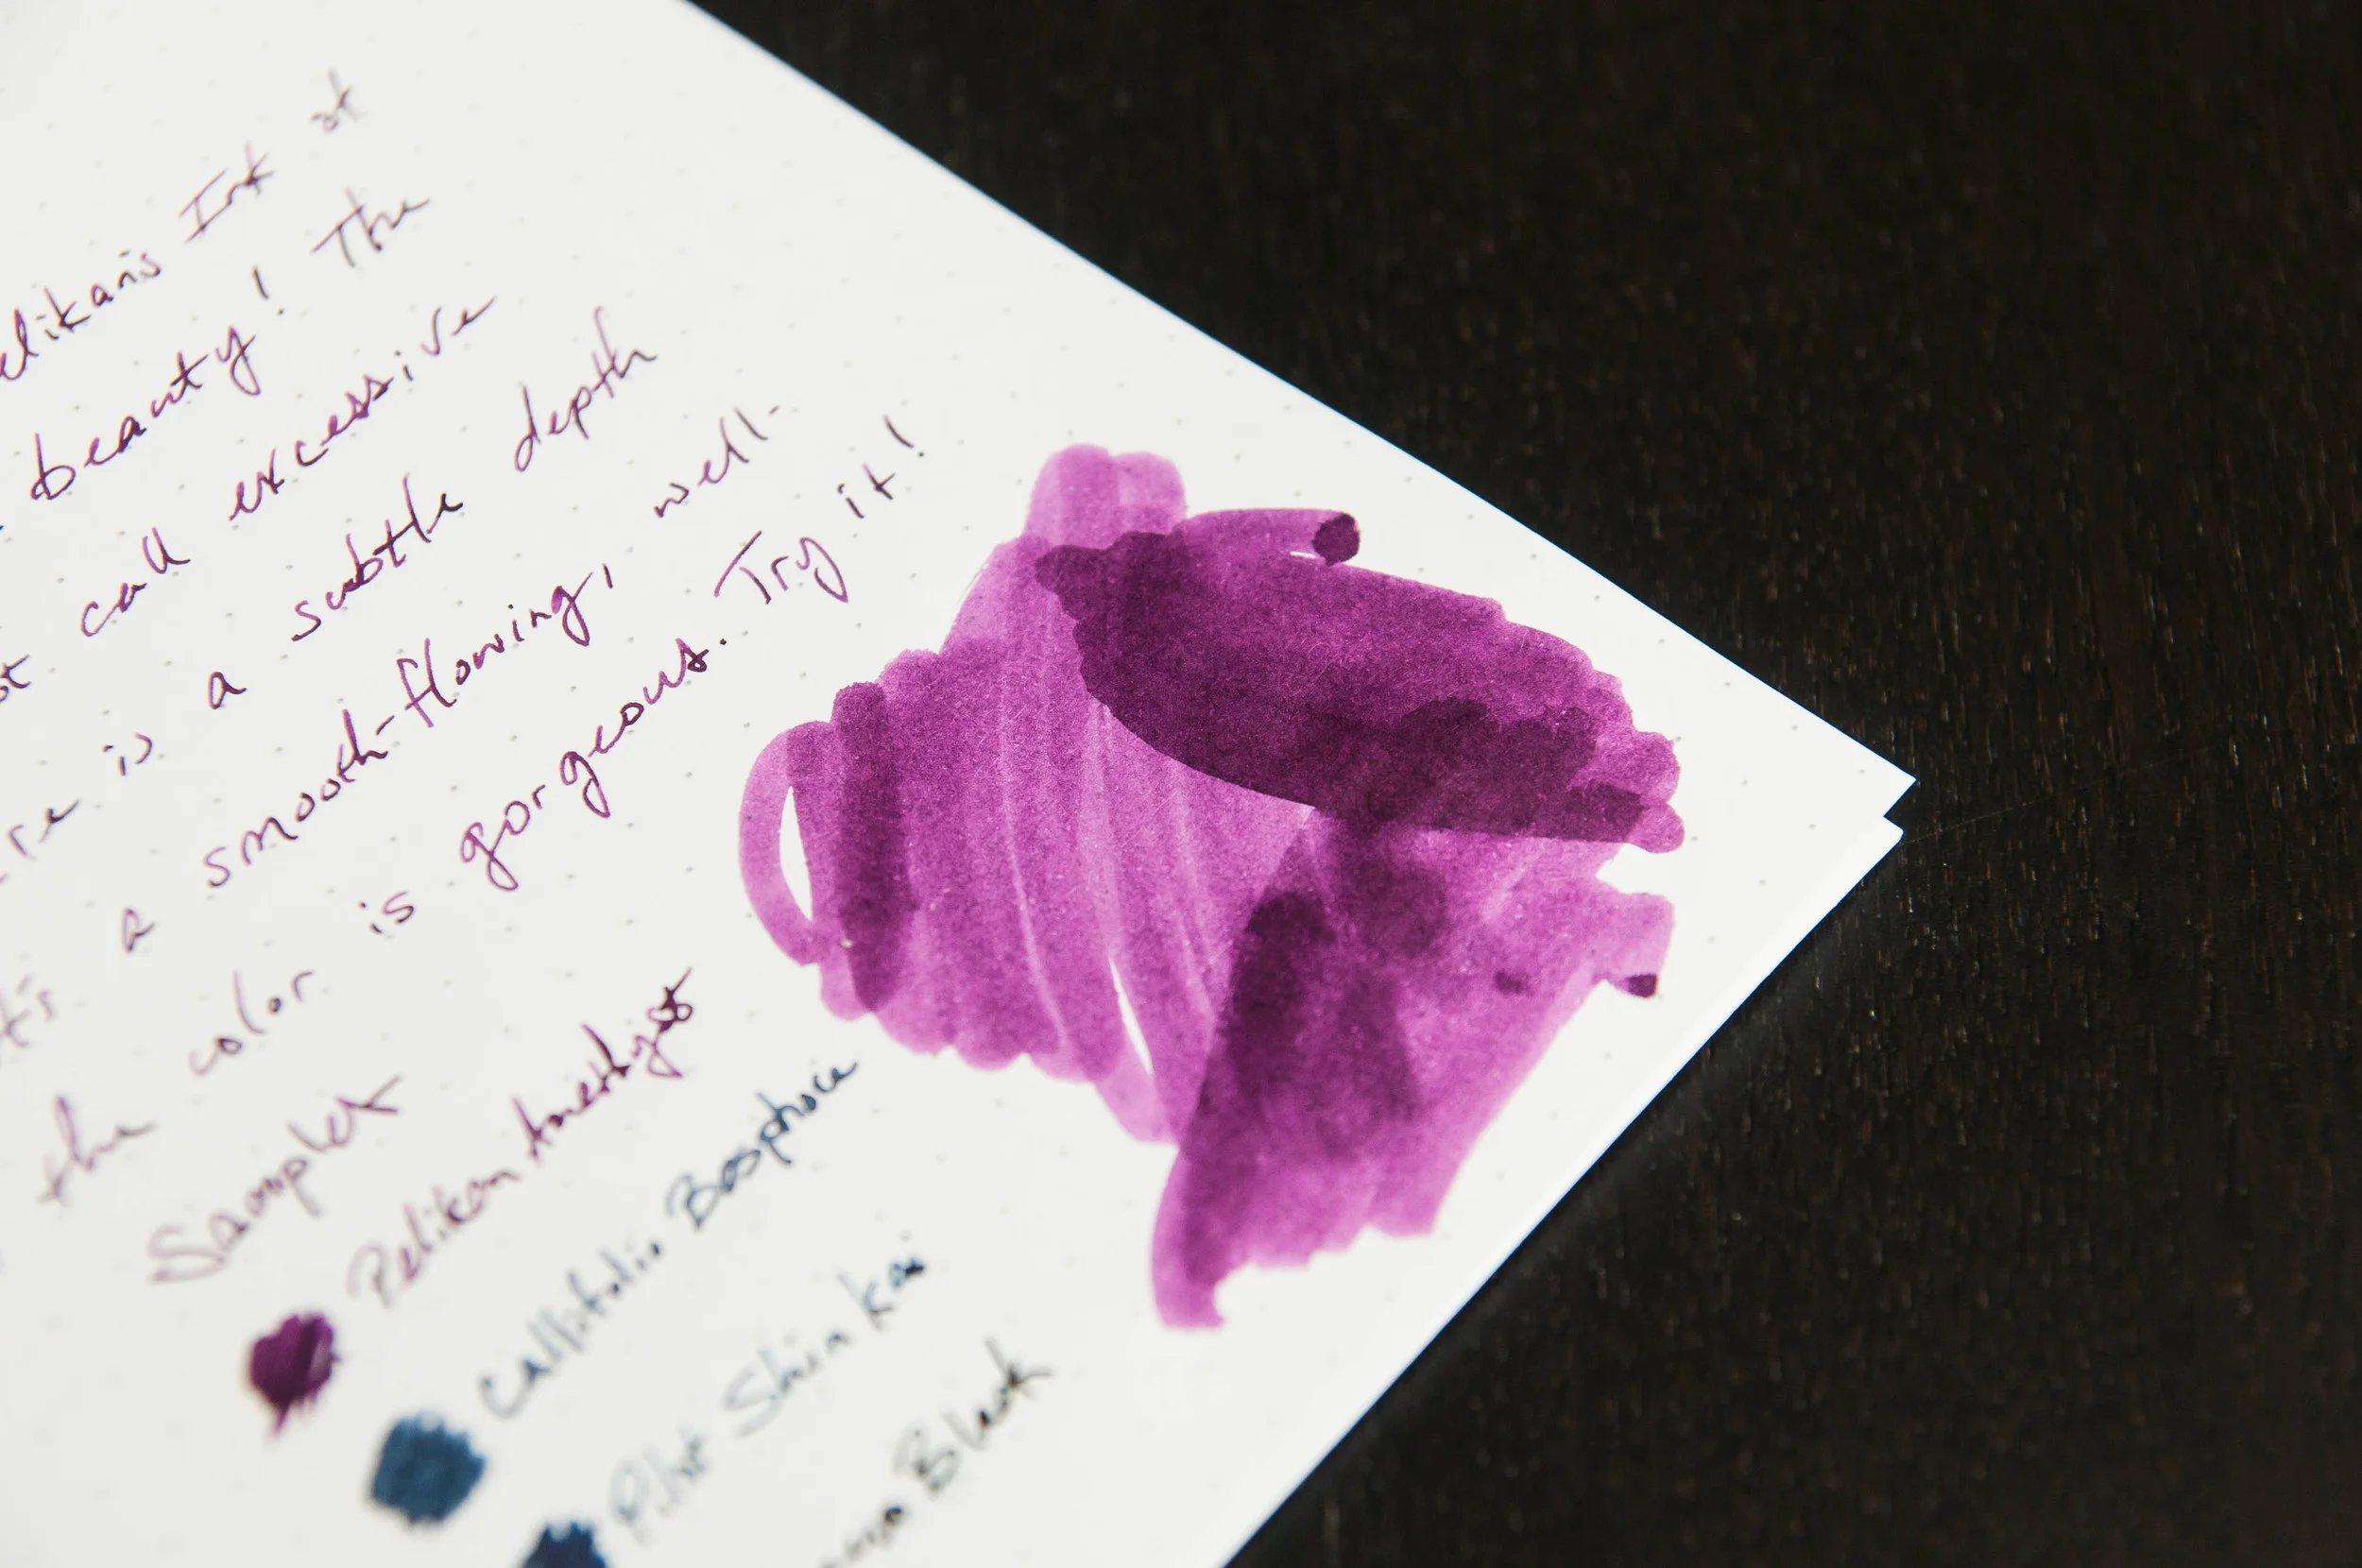 elikan's Ink of
beauty! The
ot call excessive
re is a subtle depth
t's a smooth-flowing, well-
the color is gorgeous. Try it!
Samples
Pelikan Amethyst
Callifolio Bosphore
Pilot Shin kai
Black